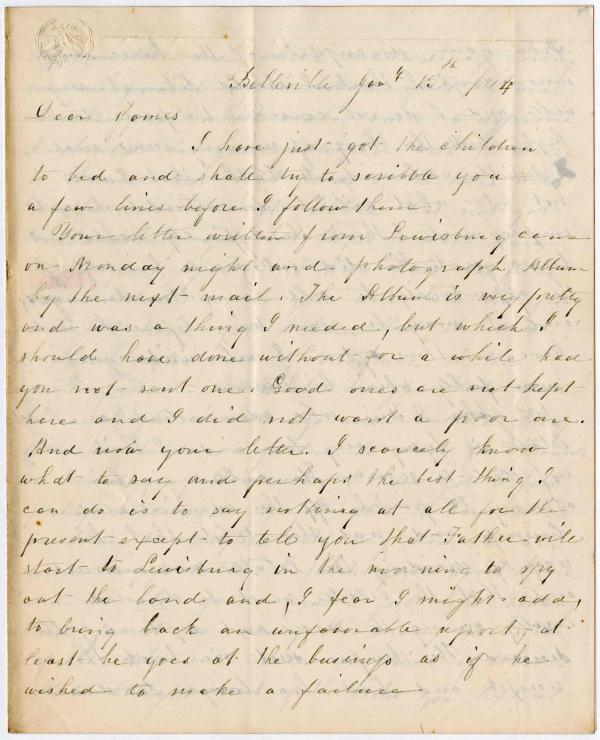 Belleville Jany 13th /64
Dear James
I have just got the children
to bed and shall try to scribble you
a few lines before I follow them
Your letter written from Lewisburg came
on Monday night and photograph Album
by the next mail. The Album is very pretty
and was a thing I needed, but which I
should have done without for a while had
you not sent one. Good ones are not kept
here and I did not want a poor one.
And now your letter. I scarcely know
what to say and perhaps the best thing I
can do is to say nothing at all for the
present except to tell you that Father will
start to Lewisburg in the morning to spy
out the land and, I fear I might add,
to bring back an unfavorable report, at
least he goes at the business as if he
wished to make a failure